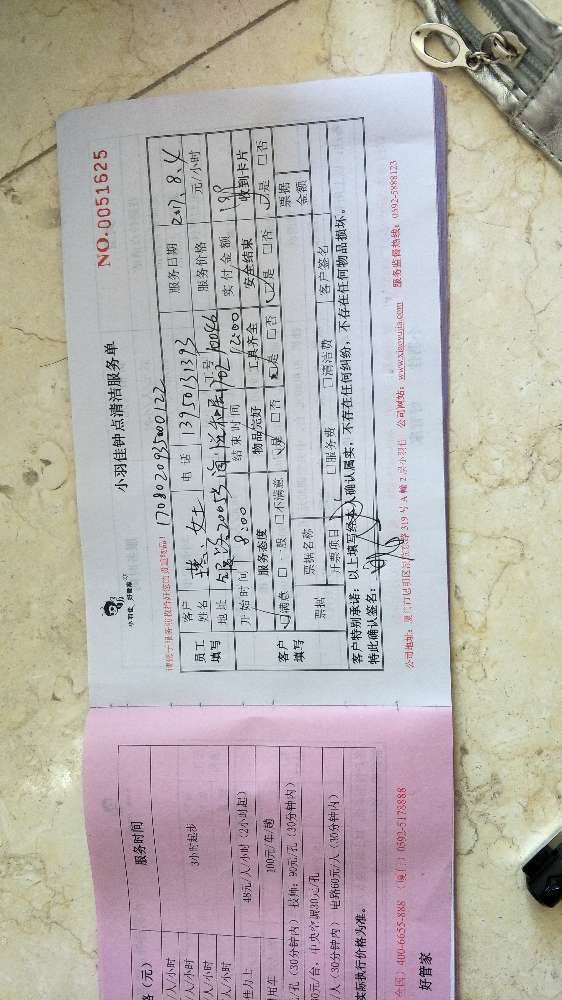 小羽佳 好管家
小羽佳钟点清洁服务单
NO.0051625
170802093500122
员工填写
客户姓名 女士 电话 13950131393 服务日期 2017.8.4
地址 服务价格 元/小时
开始时间 8:00 结束时间 12:00 实付金额
客户填写
服务态度 物品完好 工具齐全 安全结束 收到卡片
满意 一般 不满意 是 否 是 否 是 否 是 否
票据 票据名称 票据金额
开票项目 服务费 清洁费 客户签名
客户特别承诺：以上填写经本人确认属实，不存在任何纠纷，不存在任何物品损坏。
特此确认签名：
公司网站：www.xiaoyujia.com 服务监督热线：0592-5888123
服务时间
格（元）
人/小时 3小时起步
人/小时
人/小时
人/小时
48元/人/小时（2小时起）
100元/车/趟
（30分钟内） 技师：90元/孔（30分钟内）
0元/台，中央空调30元/孔
/人（30分钟内） 电路60元/人（30分钟内）
实际执行价格为准。
全国）400-6655-888 （厦门）0592-5178888
好管家